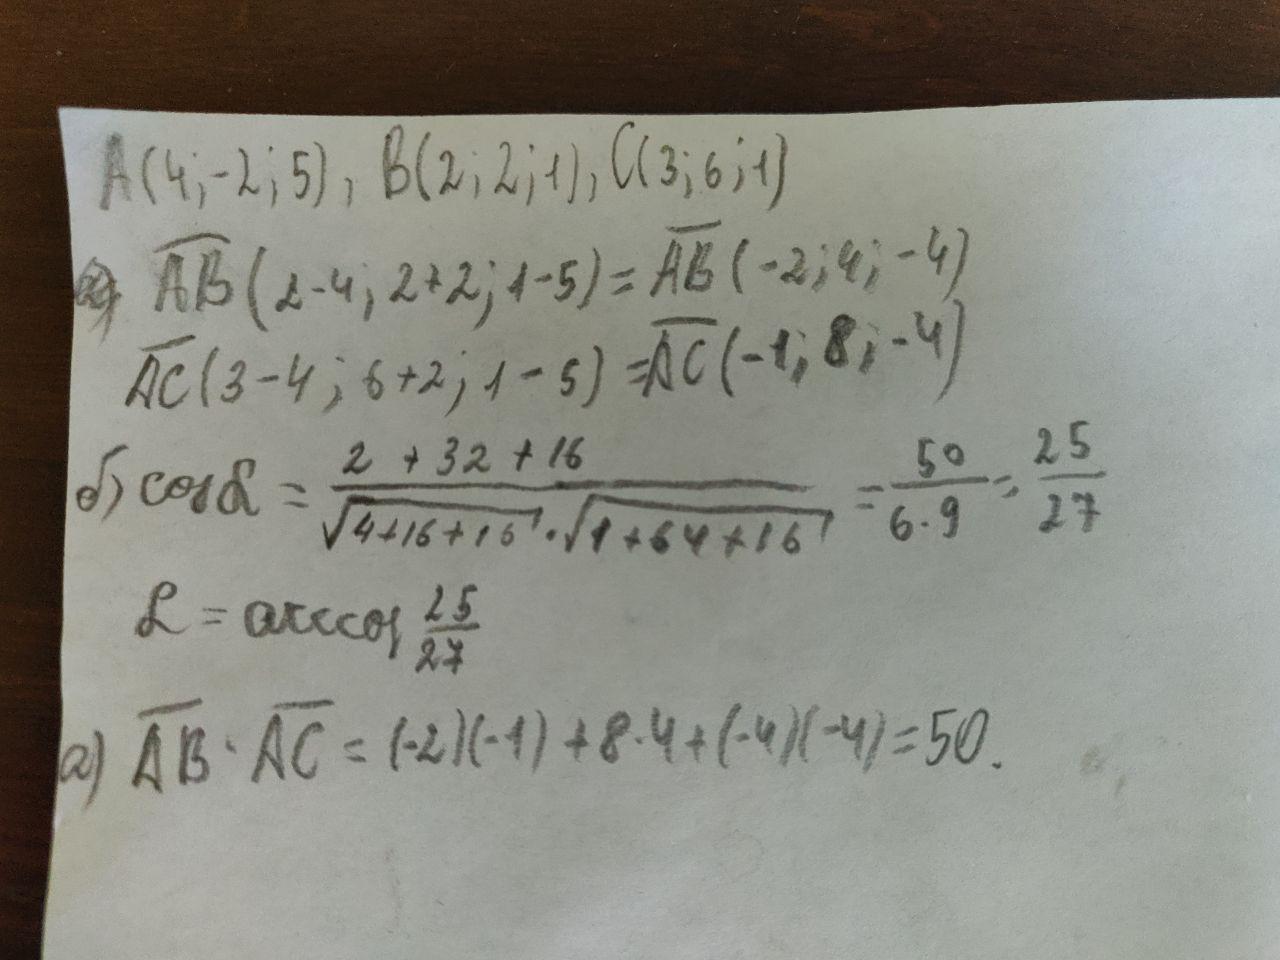 A(4;-2;5), B(2;2;1), C(3;6;1)
AB(2-4; 2+2; 1-5) = AB(-2; 4; -4)
AC(3-4; 6+2; 1-5) = AC(-1; 8; -4)
б) cos L = (2 + 32 + 16)/(√(4+16+16) · √(1+64+16)) = 50/(6·9) = 25/27
L = arccos 25/27
а) AB · AC = (-2)(-1) + 8·4 + (-4)(-4) = 50.